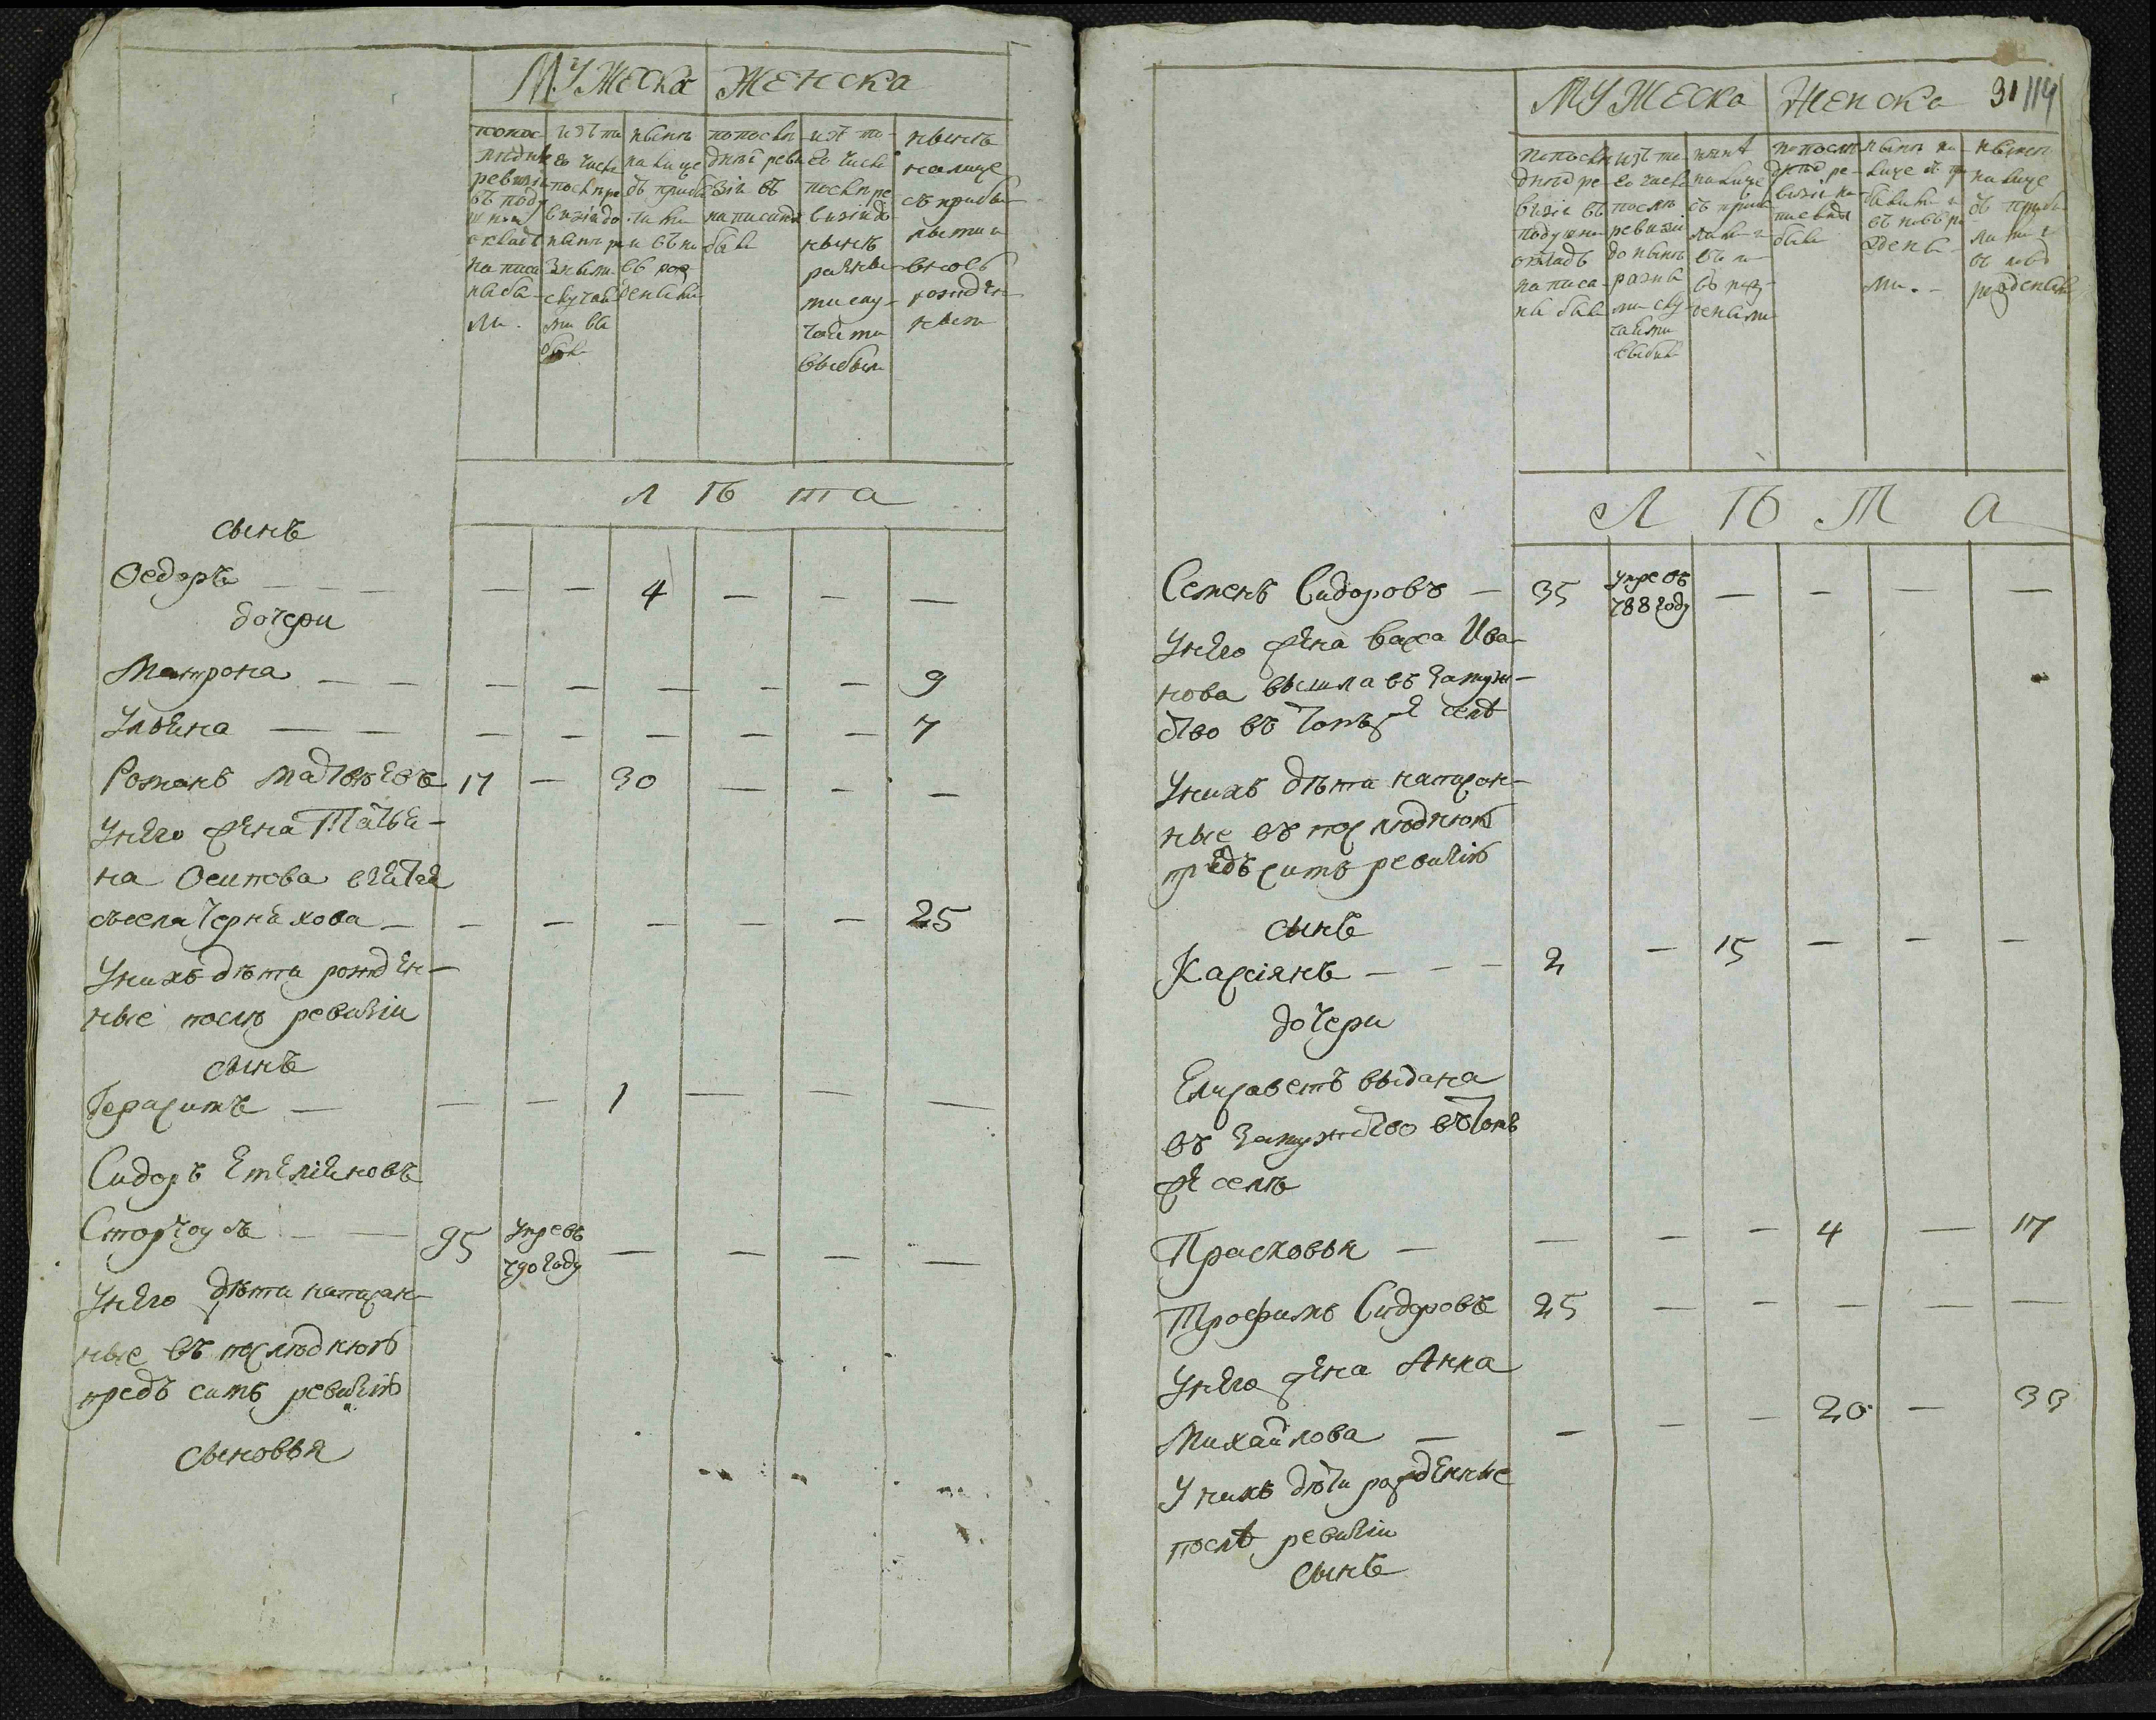 МУЖЕСКА ЖЕНСКА
по пос
лѣдней
ревизіи
въ поду
шномъ
окладѣ
написа
ны бы
ли.
изъ то
го числа
послѣ ре
визіи до
нынѣ ра
зными
случаи
ми вы
были
нынѣ
на лице
съ прибы
лыми
и въ но
въ рож
денными
по послѣ
дней реви
зіи въ
написано
было
изъ то-
го числа
послѣ ре
визіи до
нынѣ
разны-
ми слу-
чаями
выбыли
нынѣ
на лице
съ прибы-
лыми и
вновь
рожден-
ными
лѣта
сынъ
Ѳедоръ — — — — 4 — — —
дочери
Матрона — — — — — — — 9
Ульяна — — — — — — — 7
Романъ Матвѣевъ 17 — 30 — — —
У него жена Татья-
на Осипова взятая
съ села Черняхова — — — — — — 25
У нихъ дѣти рожден-
ные послѣ ревизіи
сынъ
Герасимъ — — — 1 — — —
Сидоръ Емеліяновъ
Сторчоусъ — — 95 умре въ
790 году — — — —
У него дѣти написан-
ные въ послѣднюю
предъ симъ ревизію
сыновья
МУЖЕСКА ЖЕНСКА 31 114
По послѣ
дней ре-
визіи въ
подушно
окладѣ
написа-
ны были
изъ то-
го числа
послѣ
ревизіи
до нынѣ
разны
ми слу-
чаями
выбыли
нынѣ
на лице
съ прибы
лыми и
въ но
въ рож-
денными
по послѣ
дней ре-
визіи на
писано
было
нынѣ на
лице съ при
былыми и
въ новь ро
ждены-
ми. —
нынѣ
на лице
съ прибы
лыми и
въ новь
рожденными
ЛѢТА
Семенъ Сидоровъ — 35 умре въ
788 году — — — —
У него жена Васса Ива-
нова вышла въ замуж-
ство въ томъ же селѣ
У нихъ дѣти написан-
ные въ послѣднюю
предъ симъ ревизію
сынъ
Кассіянъ — — — 2 — 15 — — —
дочери
Елисаветъ выдана
въ замужство въ томъ
же селѣ
Прасковья — — — — 4 — 17
Трофимъ Сидоровъ 25 — — — — —
У него жена Анна
Михайлова — — — — 20 — 33
У нихъ дѣти рожденные
послѣ ревизіи
сынъ